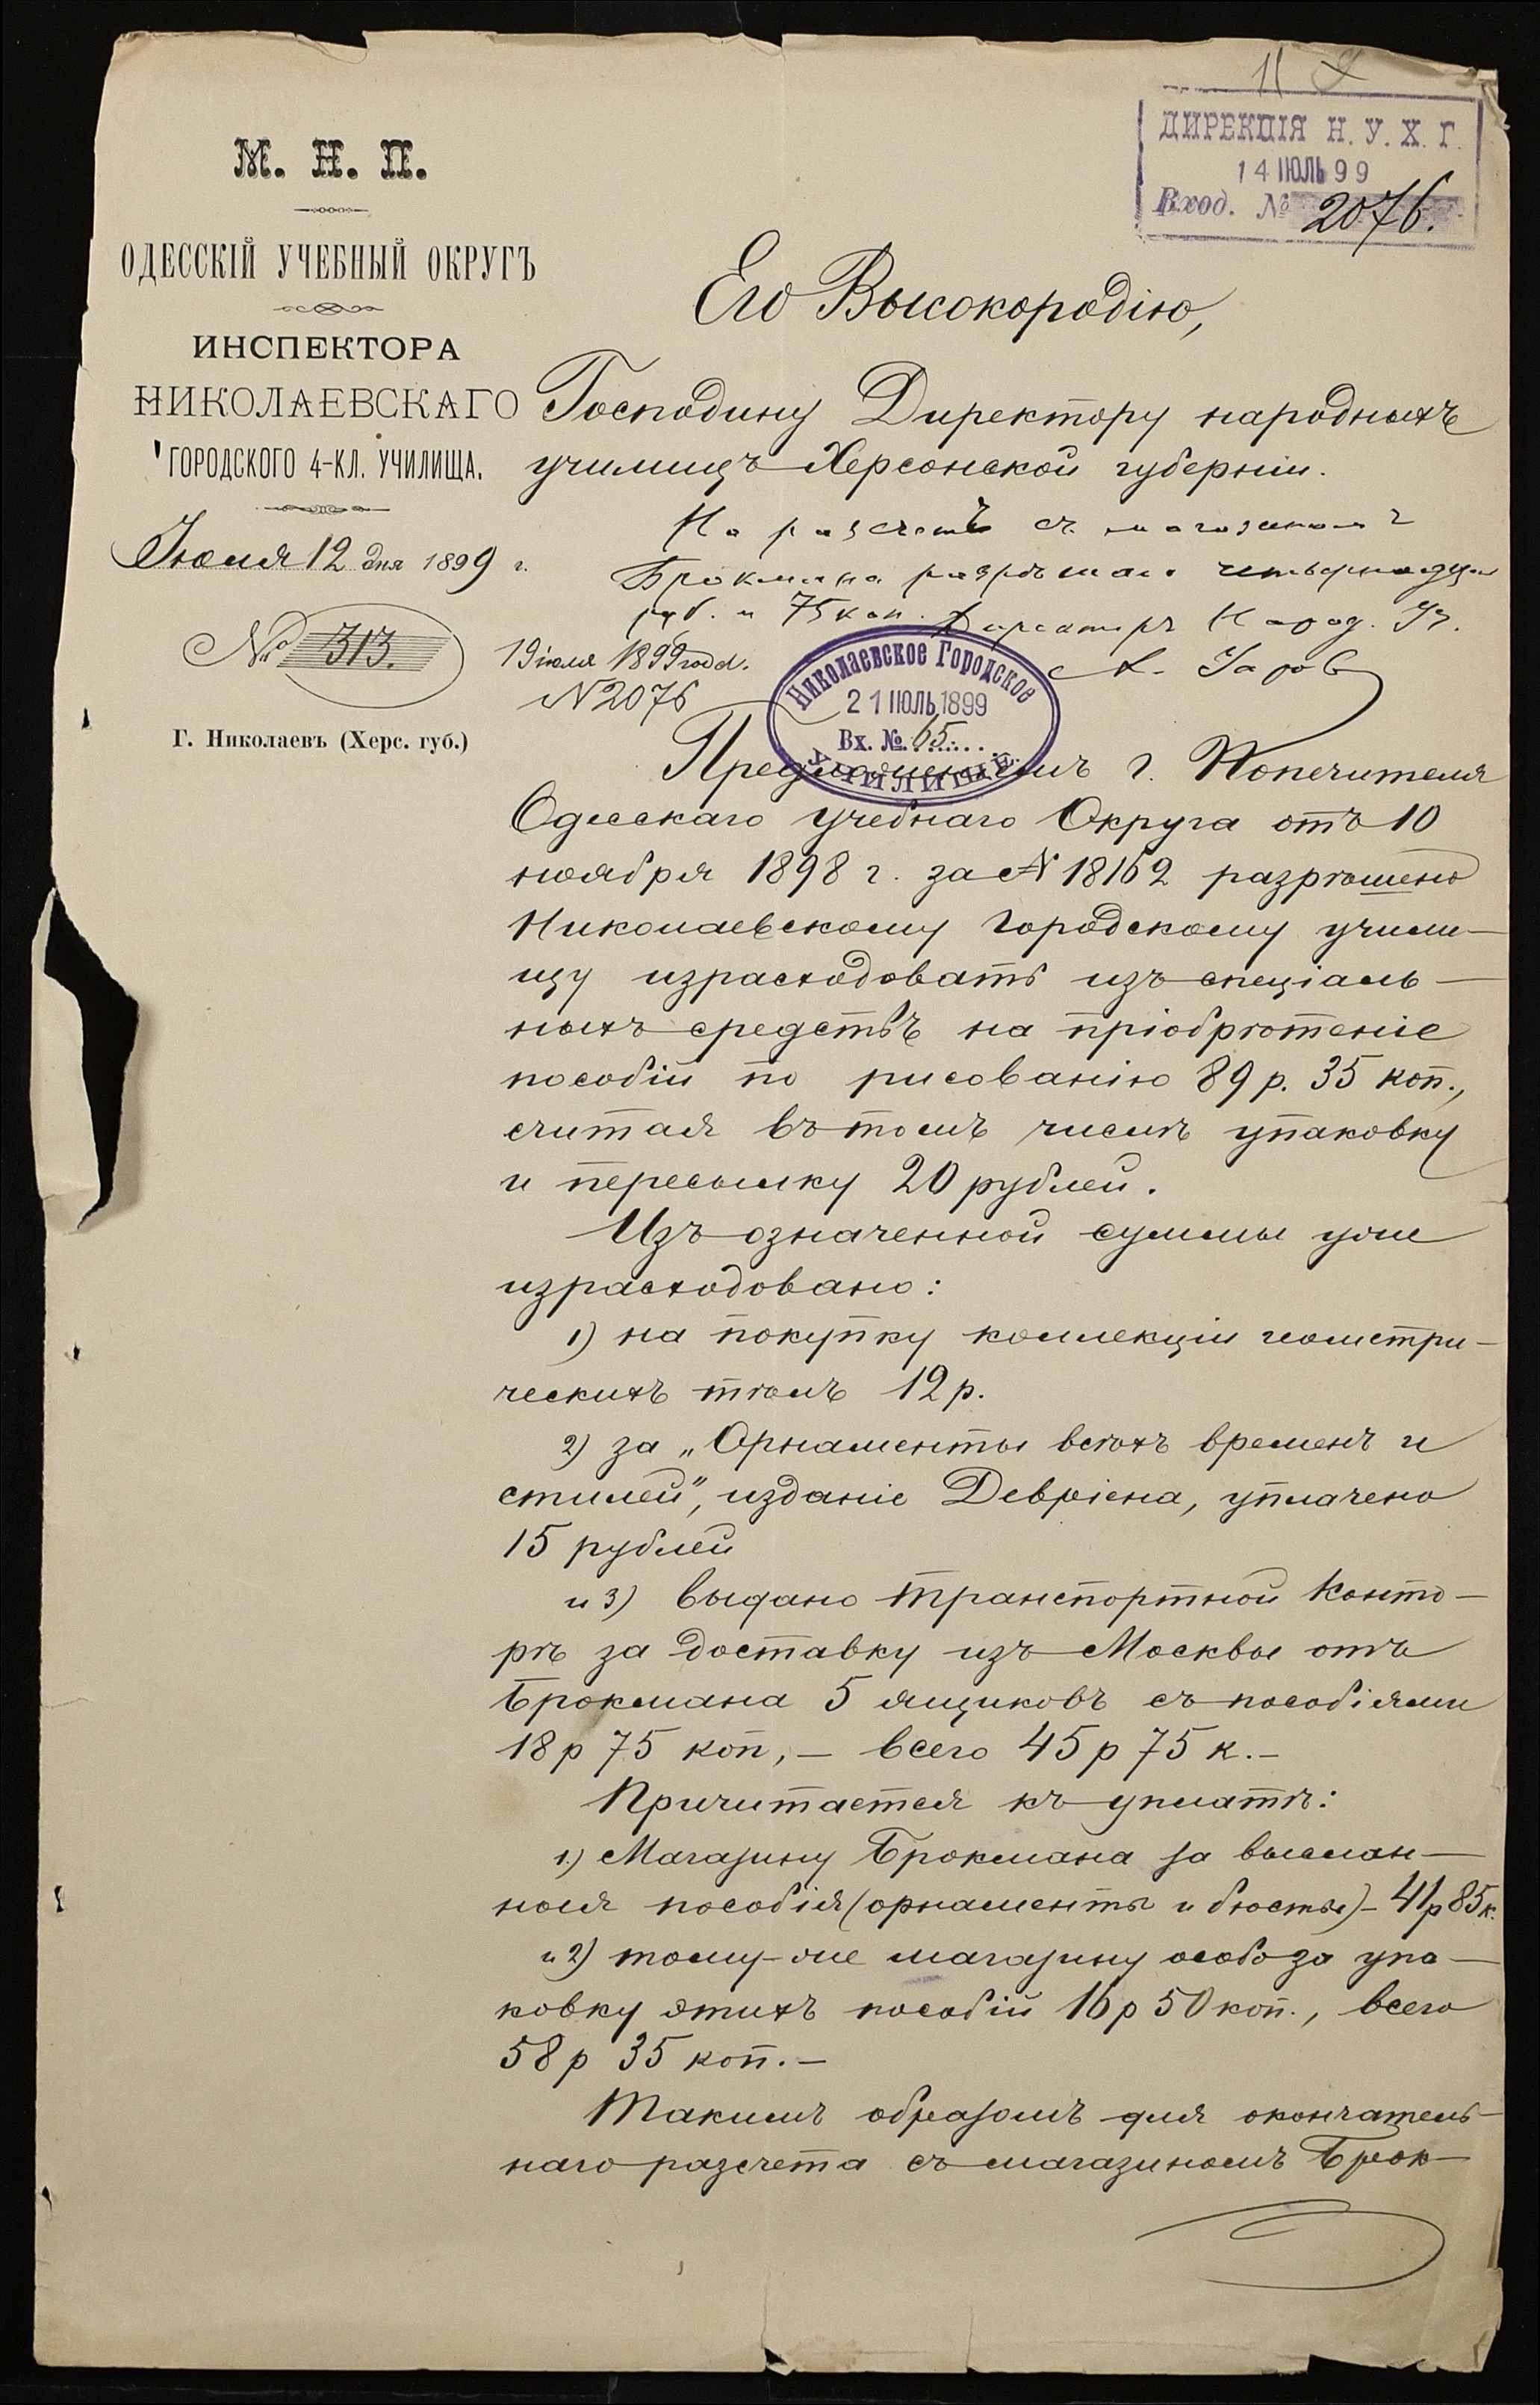 М. Н. П.
ОДЕССКІЙ УЧЕБНЫЙ ОКРУГЪ
ИНСПЕКТОРА
НИКОЛАЕВСКАГО
ГОРОДСКОГО 4-КЛ. УЧИЛИЩА.
Іюля 12 дня 1899 г.
№ 313.
Г. Николаевъ (Херс. губ.)
ДИРЕКЦІЯ Н. У. Х. Г.
14 ІЮЛЬ 99
Вход. № 2076.
Его Высокородію,
Господину Директору народныхъ
училищъ Херсонской губерніи.
На разсчетъ съ магазиномъ
Брокмана разрѣшаю четырнадца
руб. и 75 коп. Директоръ Народ. Уч.
19 іюля 1899 года.
№ 2076
Николаевское Городское
21 ІЮЛЬ 1899
Вх. №. 65
УЧИЛИЩЕ.
Предложеніемъ г. Попечителя
Одесскаго учебнаго Округа отъ 10
ноября 1898 г. за № 18162 разрѣшено
Николаевскому Городскому учили-
щу израсходовать изъ спеціаль-
ныхъ средствъ на пріобрѣтеніе
пособій по рисованію 89 р. 35 коп.,
считая въ томъ числѣ упаковку
и пересылку 20 рублей.
Изъ означенной суммы уже
израсходовано:
1) на покупку коллекціи геометри-
ческихъ тѣлъ 12 р.
2) за „Орнаменты всѣхъ временъ и
стилей", изданіе Девріена, уплачено
15 рублей
и 3) выдано транспортной конто-
рѣ за доставку изъ Москвы отъ
Брокмана 5 ящиковъ съ пособіями
18 р 75 коп, — всего 45 р 75 к. —
Причитается къ уплатѣ:
1.) Магазину Брокмана за выслан-
ныя пособія (орнаменты и бюсты) - 41 р 85 к.
и 2) тому-же магазину особо за упа-
ковку этихъ пособій 16 р 50 коп., всего
58 р 35 коп. —
Такимъ образомъ для окончатель-
наго разсчета съ магазиномъ Брок-